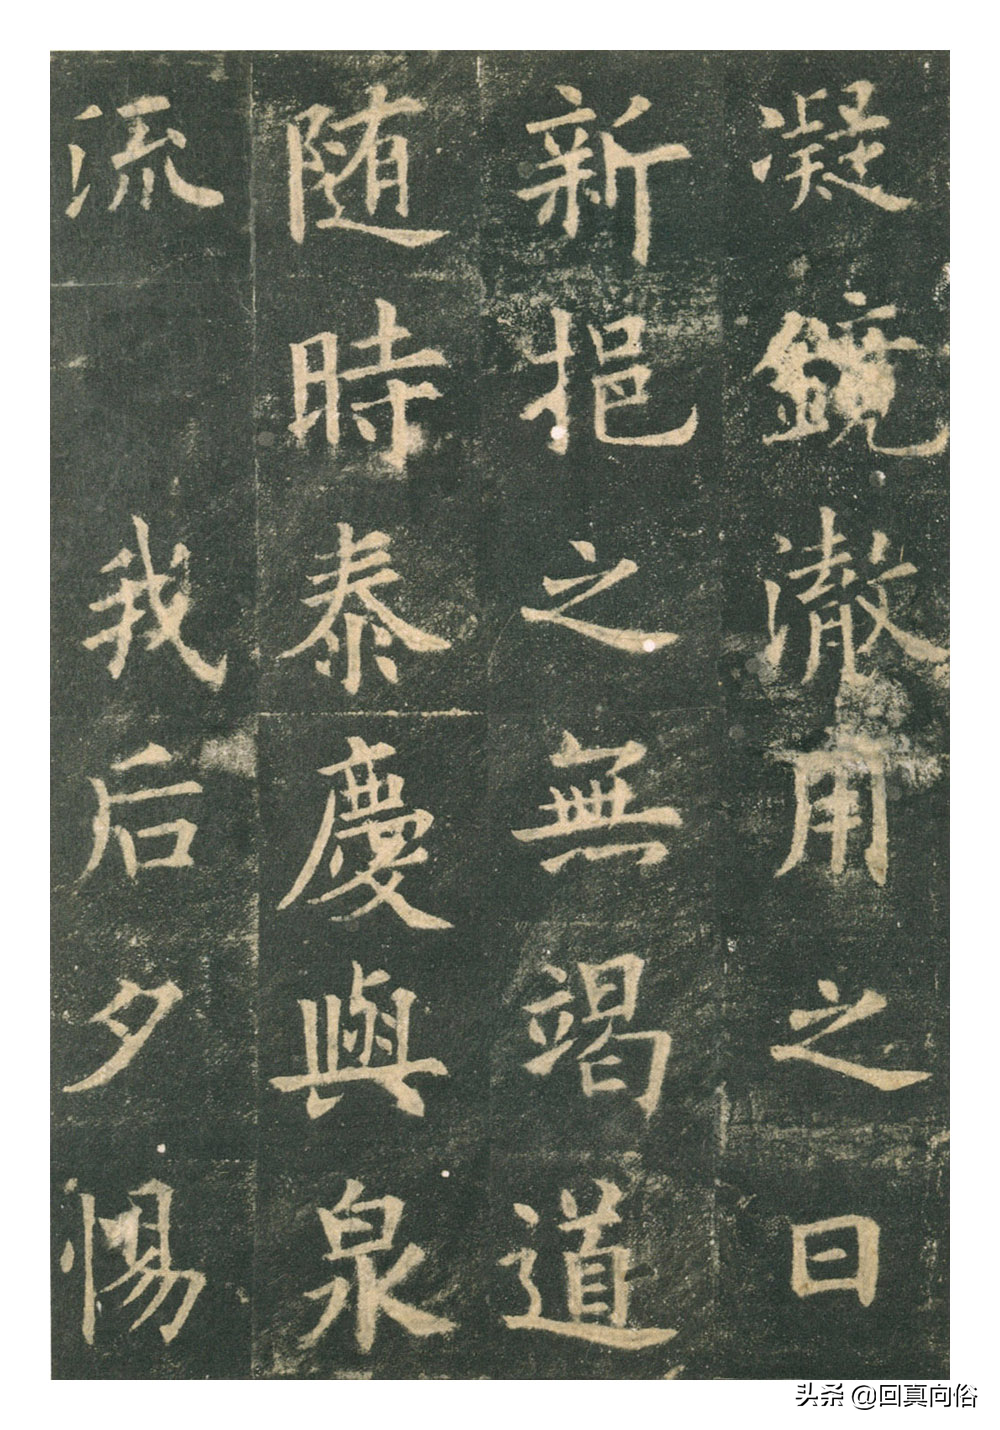 凝鏡澈用之日
新挹之無竭道
随時泰慶與泉
流我后夕惕
头条 @回真向俗